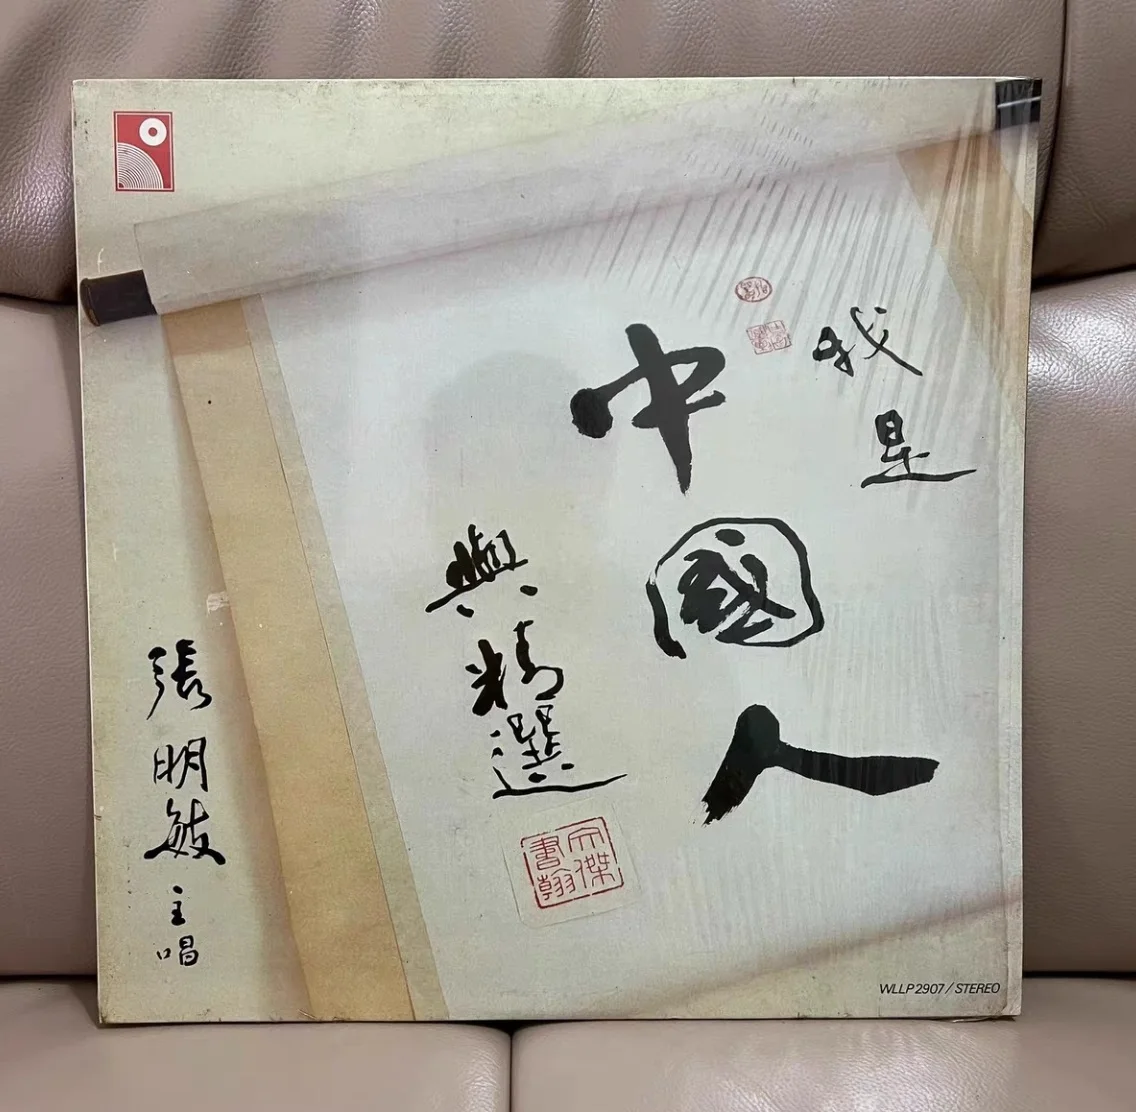 我是
中國人
與精選
文傑
書翰
張明敏
主唱
WLLP 2907 / STEREO